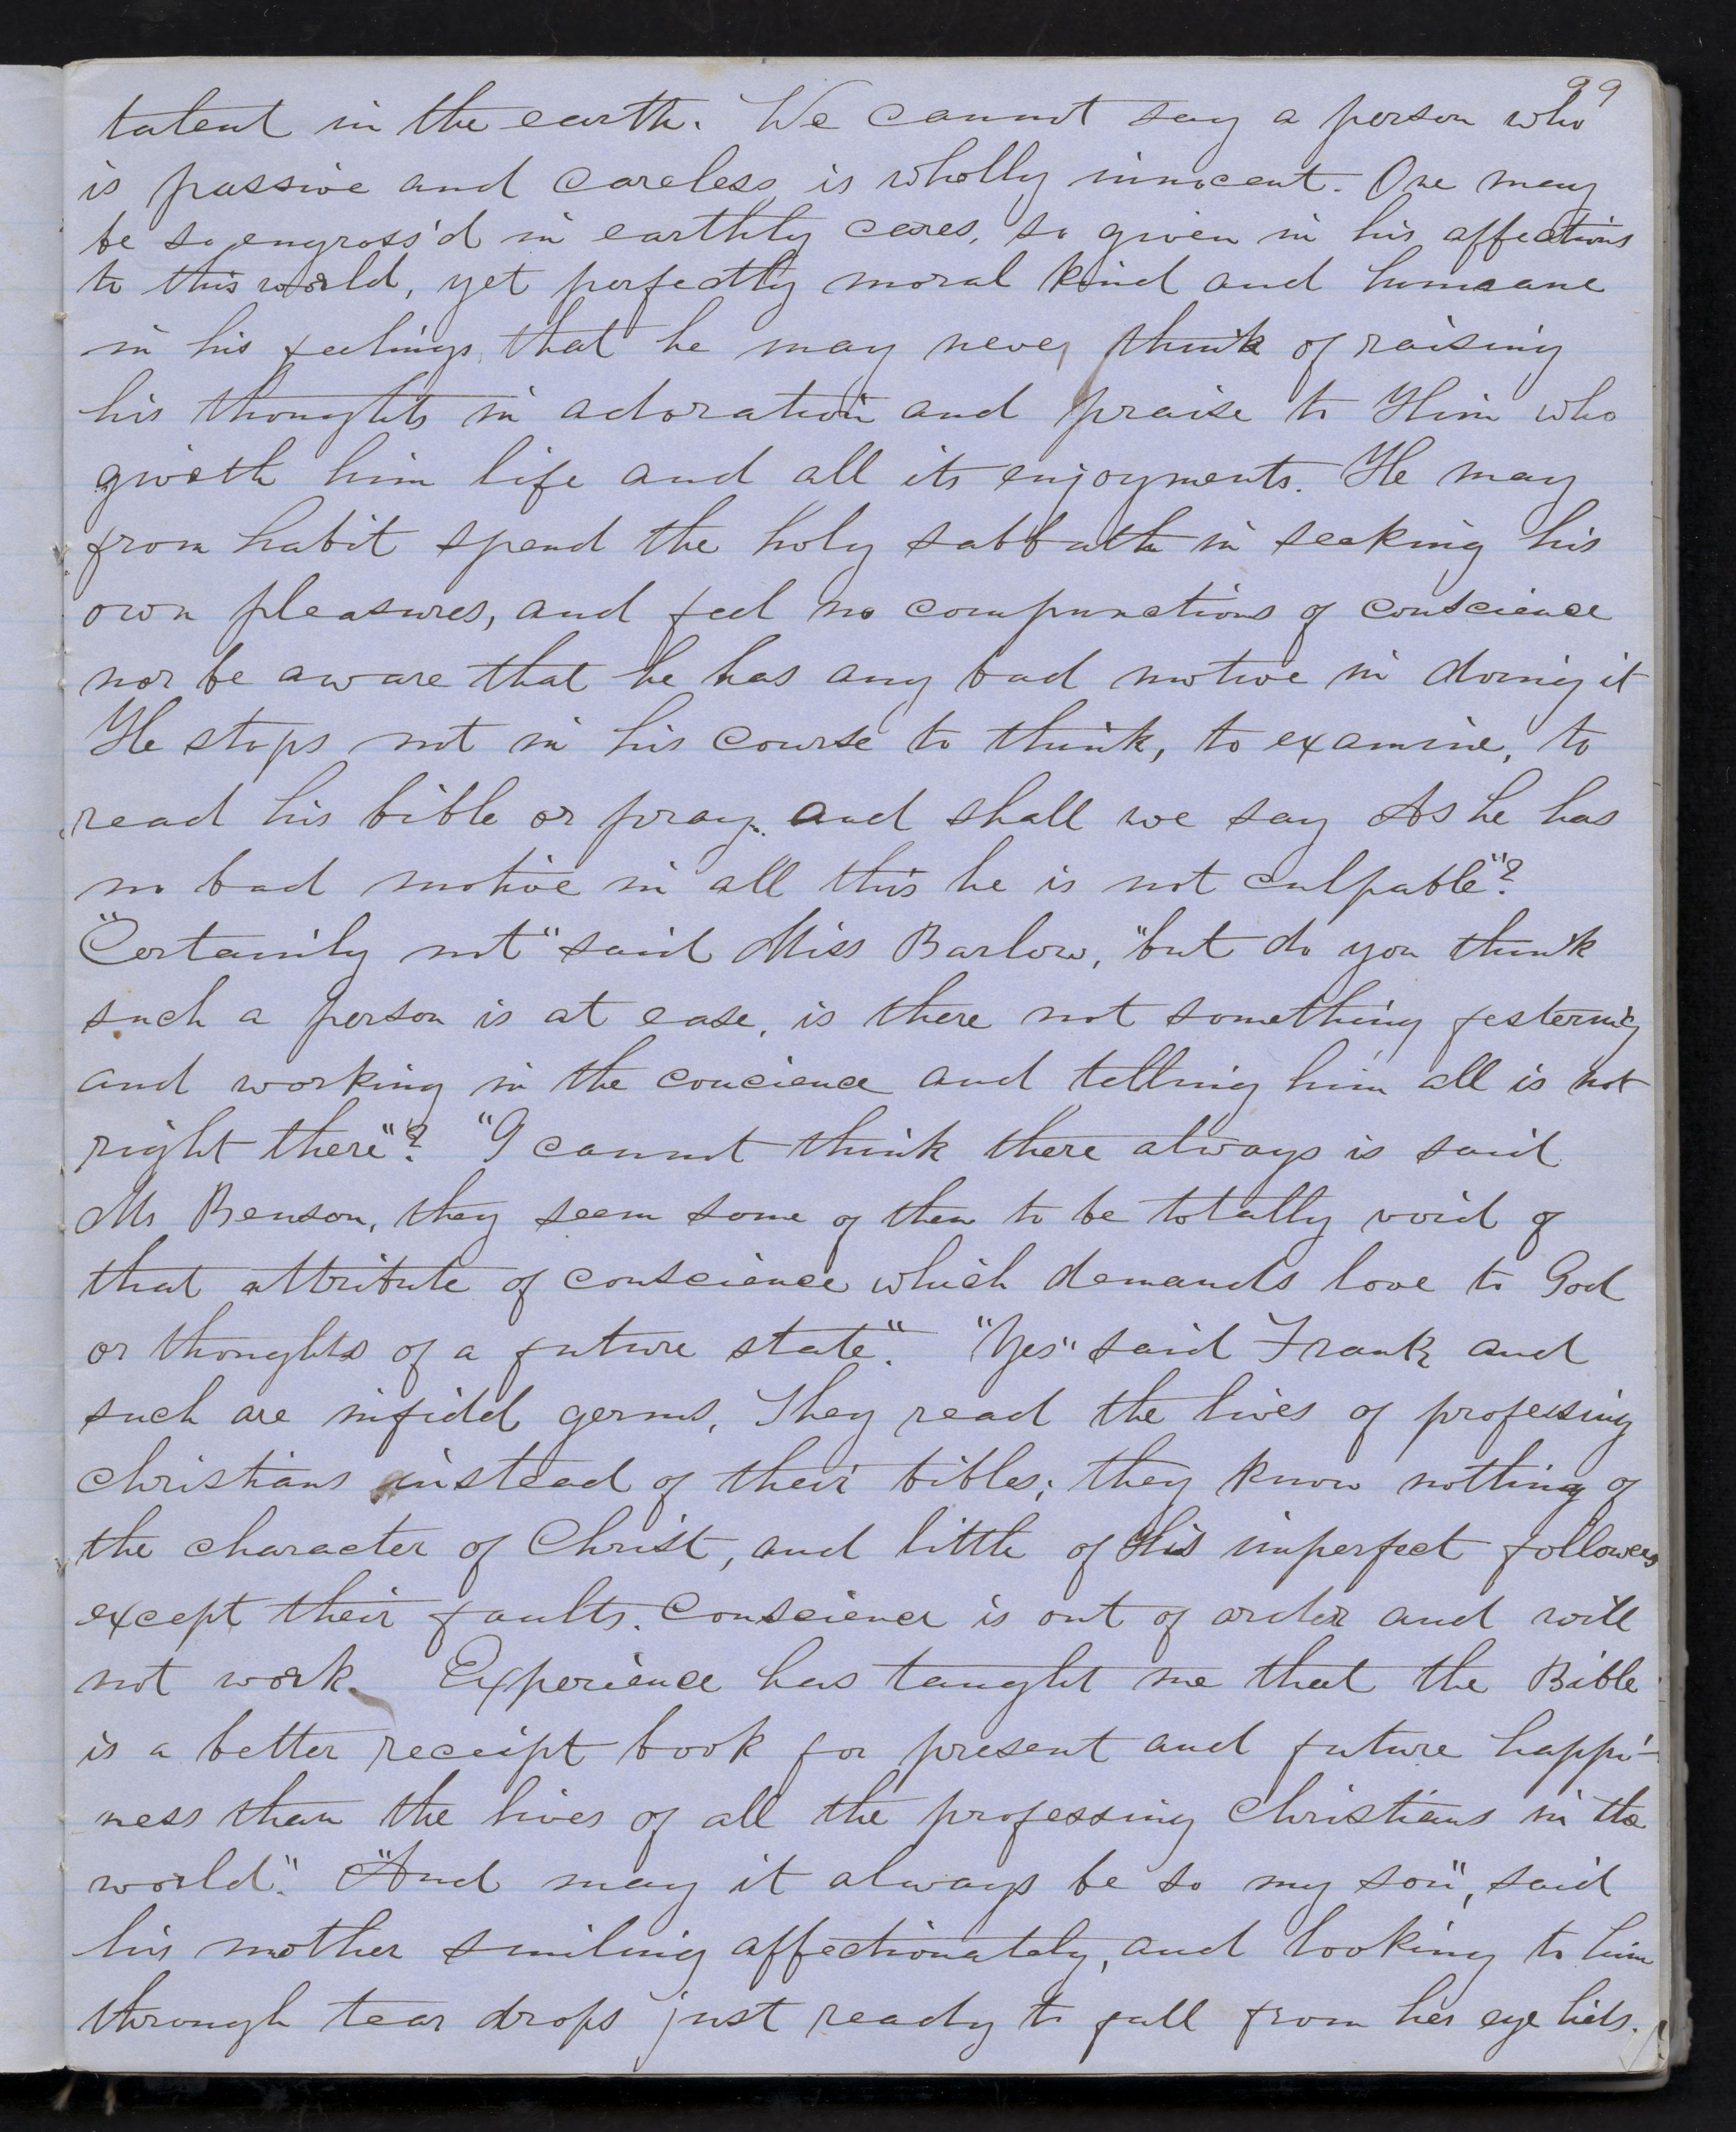 99
talent in the earth. We cannot say a person who
is passive and careless is wholly innocent. One may
be so engross'd in earthly cares, so given in his affections
to this world, yet perfectly moral kind and humane
in his feelings, that he may never think of raising
his thoughts in adoration and praise to Him who
giveth him life and all its enjoyments. He may
from habit spend the holy sabbath in seeking his
own pleasures, and feel no compunctions of conscience
nor be aware that he has any bad motive in doing it
He stops not in his course to think, to examine, to
read his bible or pray. and shall we say As he has
no bad motive in all this he is not culpable"?
"Certainly not" said Miss Barlow, "but do you think
such a person is at ease, is there not something festering
and working in the concience and telling him all is not
right there"? "I cannot think there always is said
Mr Benson, they seem some of them to be totally void of
that attribute of conscience which demands love to God
or thoughts of a future state". "Yes" said Frank and
such are infidel germs, They read the lives of professing
christians instead of their bibles; they know nothing of
the character of Christ, and little of His imperfect followers
except their faults. Conscience is out of order and will
not work. Experience has taught me that the Bible
is a better receipt book for present and future happi-
ness than the lives of all the professing Christians in the
world". "And may it always be so my son", said
his mother smiling affectionately, and looking to him
through tear drops just ready to fall from her eye lids.